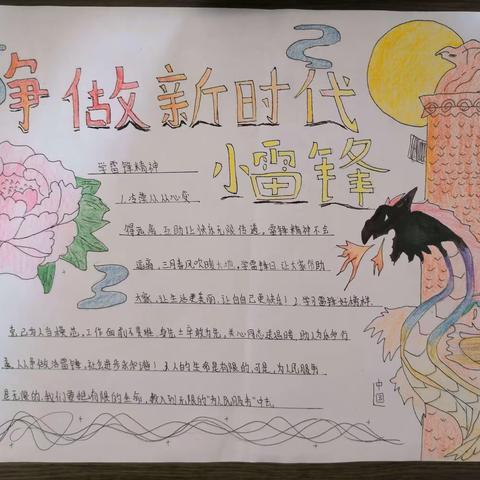 争做新时代
小雷锋
学雷锋精神
1.活雷从从心来
得远离互助让快乐无限传递，雷锋精神不会
远离，三月春风吹暖大地，学雷锋日，让大家帮助
大家，让生活更美丽，让自己更快乐！2.学习雷锋好榜样
克己为人当模范，工作面前不畏难，身先士卒敢为先，关心同志送温暖，助人为乐
人人争做活雷锋，让 3.人的生命是有限的，可是，为人民服务
是无限的，我们要把有限的生命，投入到无限的"为人民服务"中去。
中国